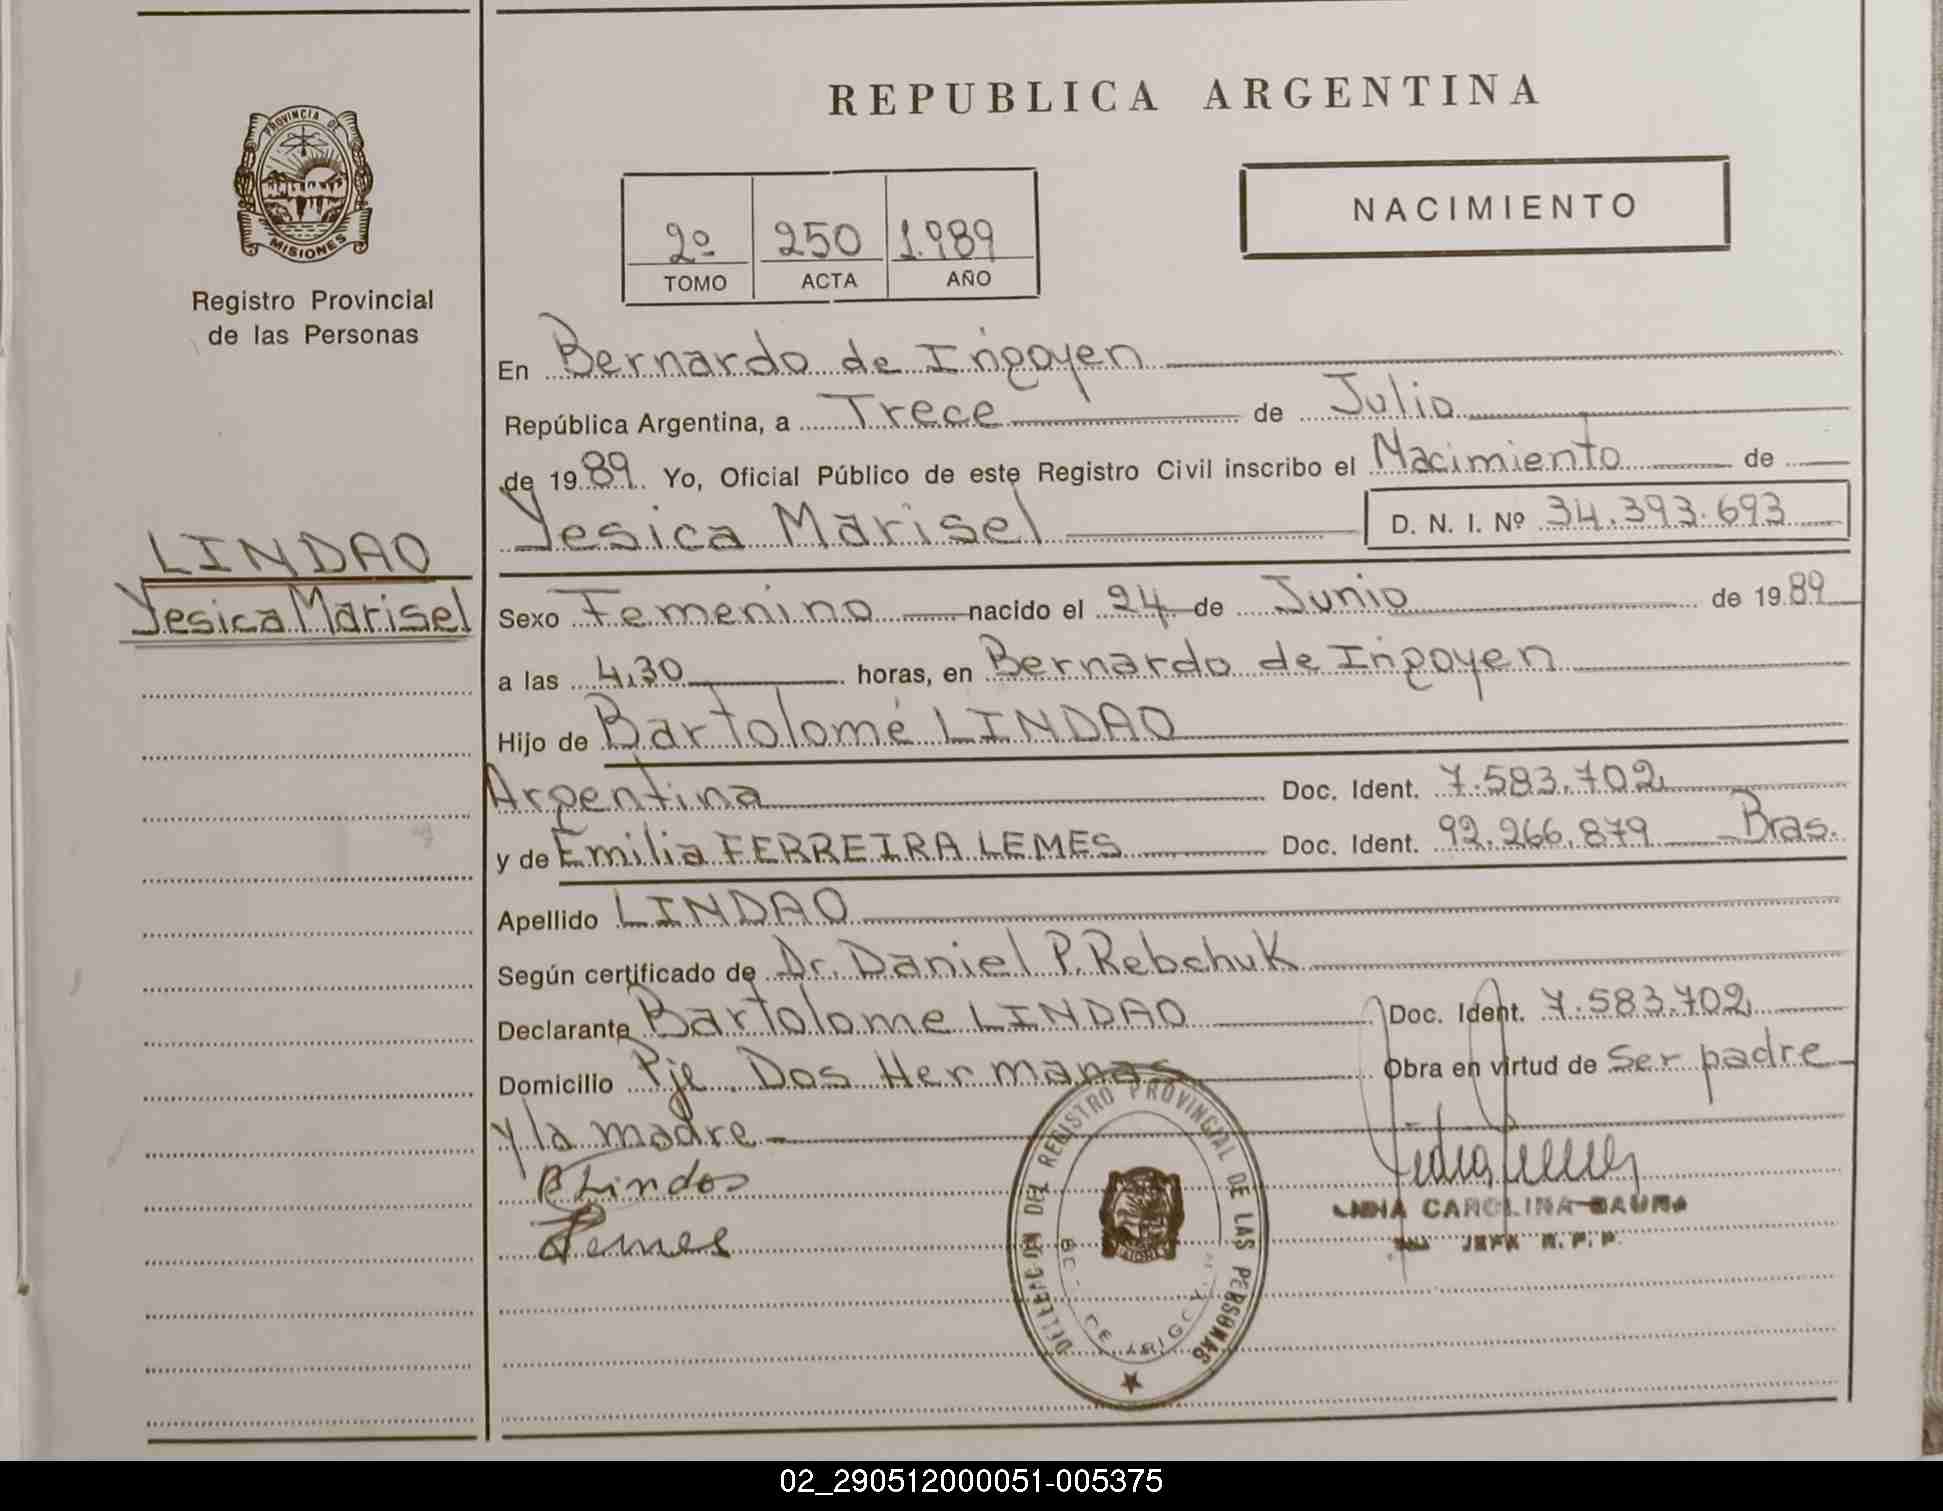 REPUBLICA ARGENTINA
PROVINCIA DE
MISIONES
Registro Provincial
de las Personas
NACIMIENTO
2º 250 1.989
TOMO ACTA AÑO
En Bernardo de Irigoyen
República Argentina, a Trece de Julio
de 1989 Yo, Oficial Público de este Registro Civil inscribo el Nacimiento de
Yesica Marisel D. N. I. Nº 34.393.693
LINDAO
Yesica Marisel
Sexo Femenino nacido el 24 de Junio de 1989
a las 4,30 horas, en Bernardo de Irigoyen
Hijo de Bartolomé LINDAO
Argentina Doc. Ident. 7.583.702
y de Emilia FERREIRA LEMES Doc. Ident. 92.266.879 Bras.
Apellido LINDAO
Según certificado de Dr. Daniel P. Rebchuk
Declarante Bartolome LINDAO Doc. Ident. 7.583.702
Domicilio Pje Dos Hermanas Obra en virtud de Ser padre
y la madre
B Lindos
Lemes
CAROLINA
JEFA R.P.P.
DELEGACION DEL REGISTRO PROVINCIAL DE LAS PERSONAS
02_290512000051-005375